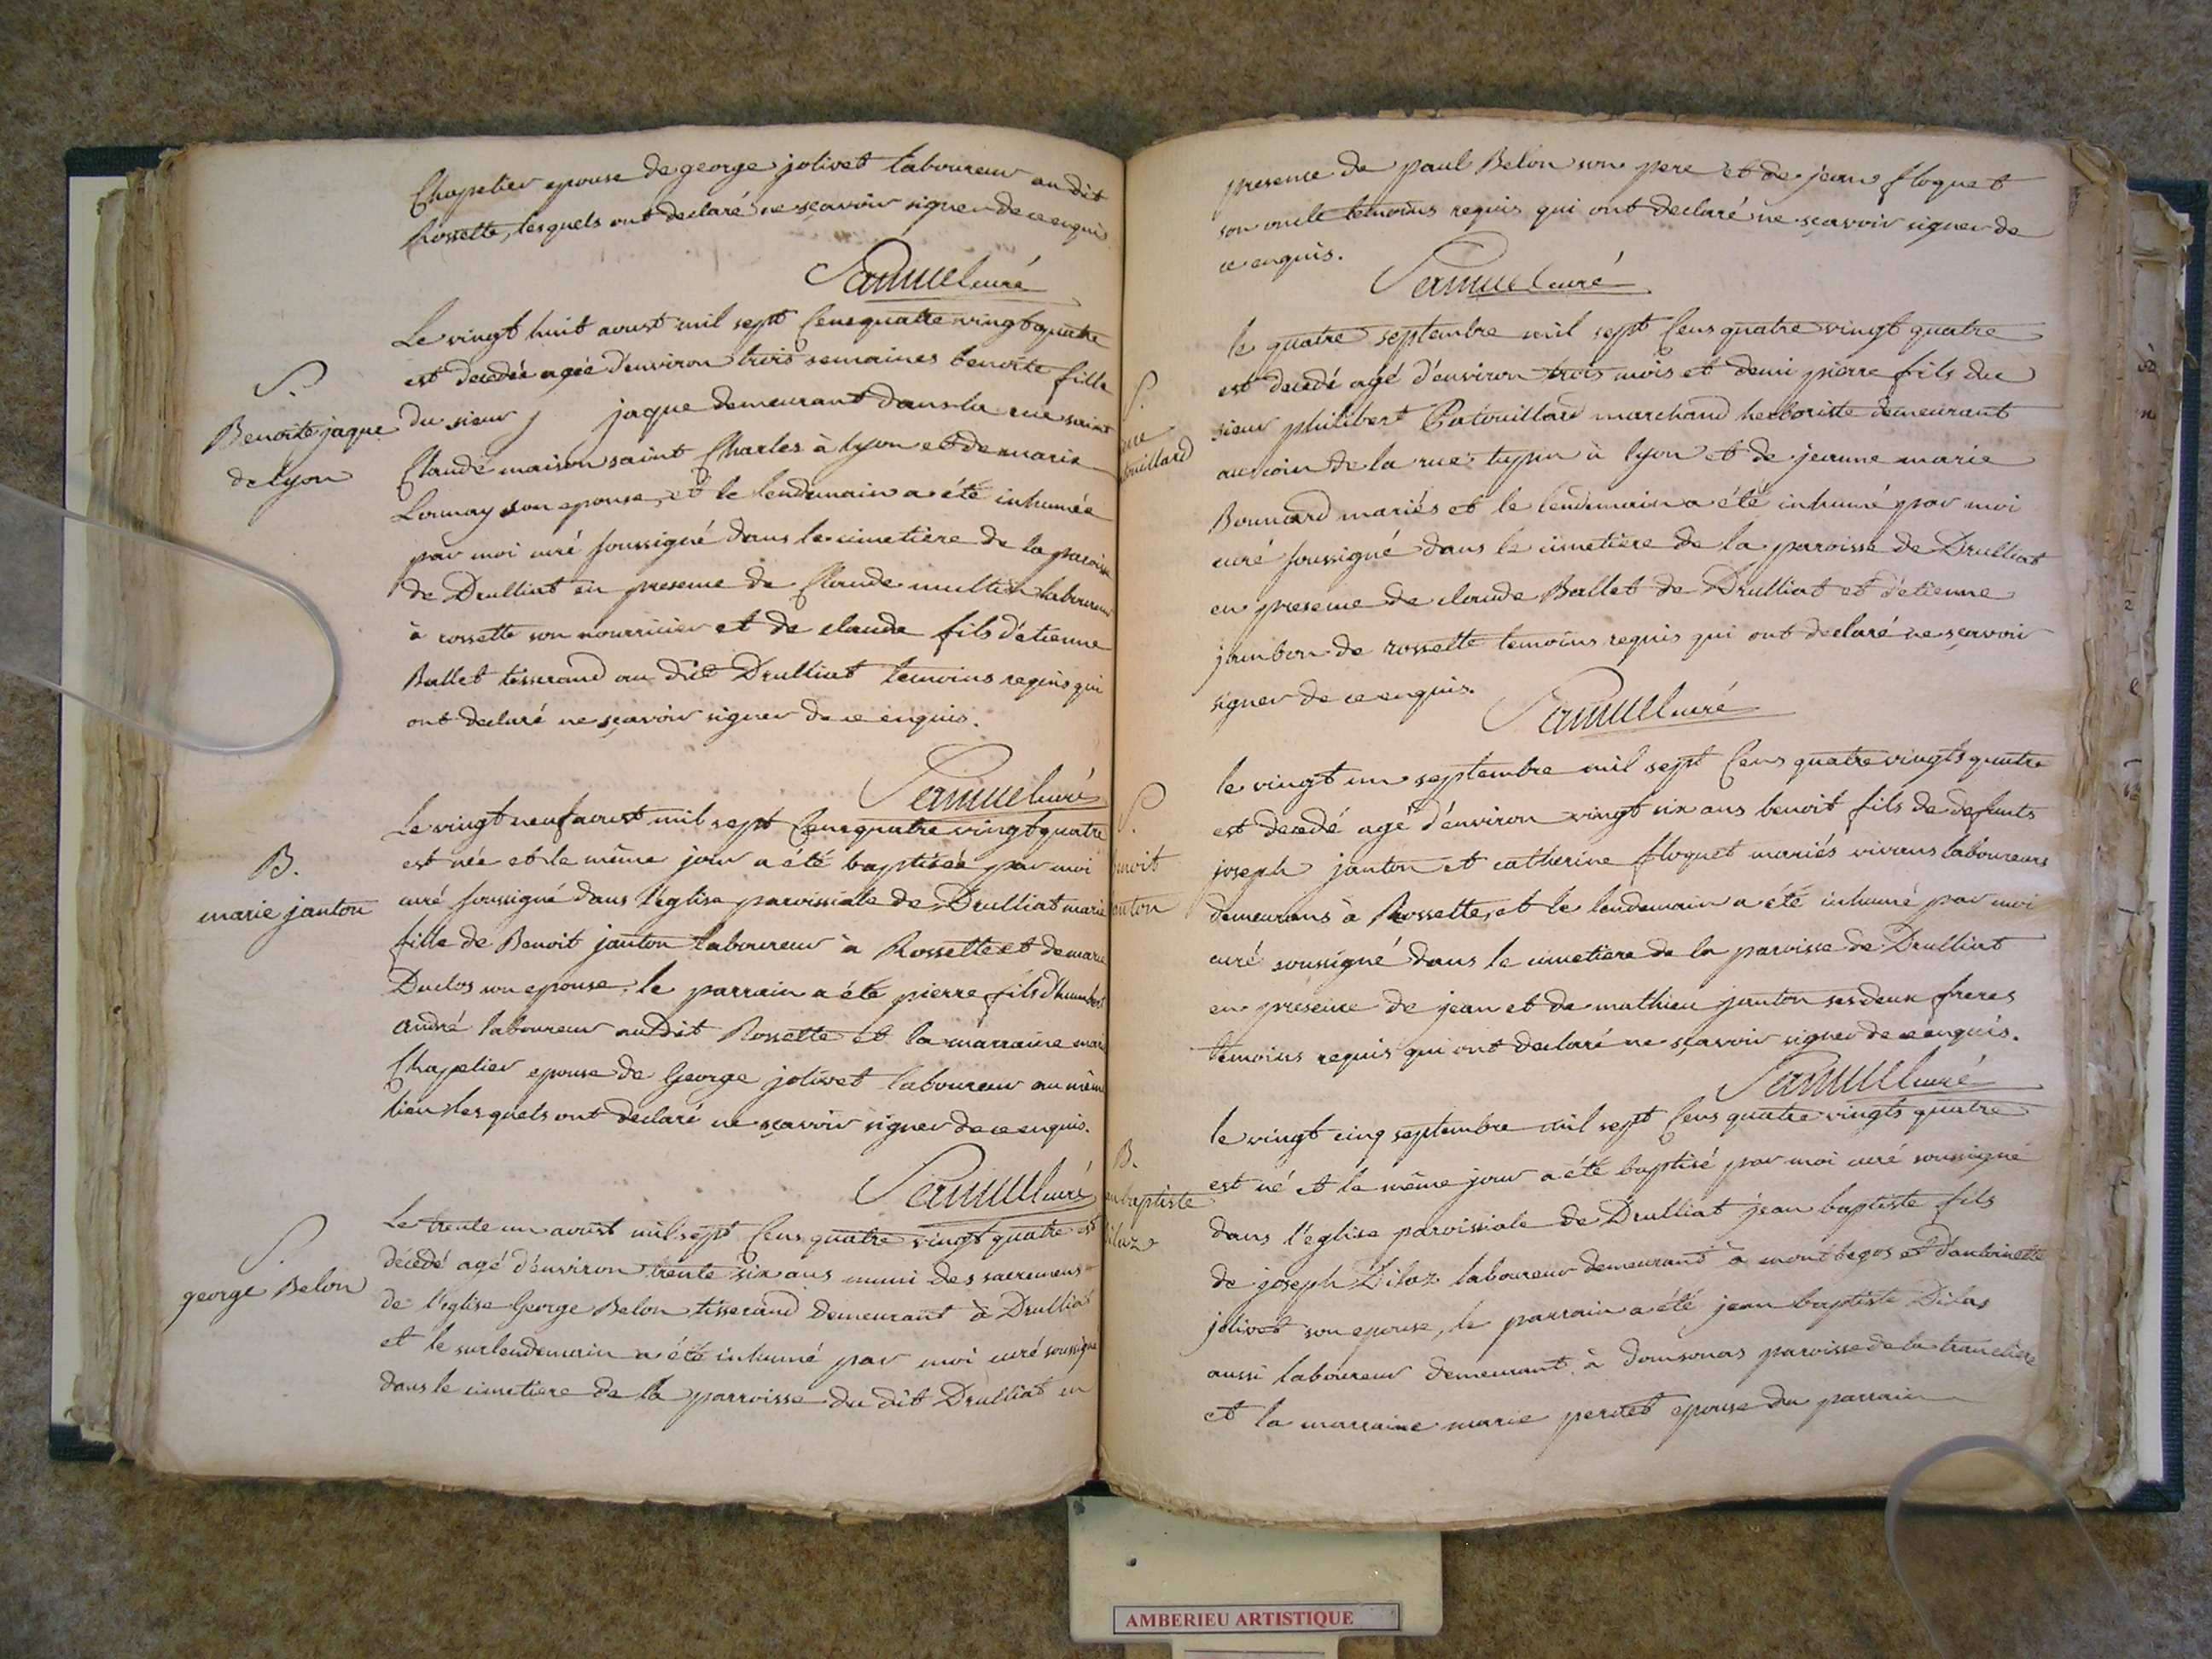 Chapelier epouse de george jolivet laboureur au dit
Rossette, lesquels ont declaré ne sçavoir signer de ce enquis
Pamuel curé
Le vingt huit aoust mil sept Cens quatre vingt quatre
est decedée agée d'environ trois semaines benoite fille
S.
Benoite jaque
de lyon
du sieur j jaque demeurant dans la rue saint
Claude maison saint Charles à lyon et de marie
Lounay son epouse, et le lendemain a été inhumée
par moi curé soussigné dans le cimetière de la paroisse
de Drulliat en presence de Claude multin laboureur
à rossette son nourricier et de claude fils d'étienne
Ballet tisserand au dit Drulliat temoins requis qui
ont declaré ne sçavoir signer de ce enquis.
Pamuel curé
Le vingt neuf aoust mil sept Cens quatre vingt quatre
est née et le même jour a été baptisée par moi
B.
marie janton
curé soussigné dans l'église paroissiale de Drulliat marie
fille de Benoit janton laboureur à Rossette et de marie
Duclos son epouse, le parrain a été pierre fils d'humbert
andré laboureur au dit Rossette et la marraine marie
Chapelier epouse de George jolivet laboureur au même
lieu lesquels ont declaré ne sçavoir signer de ce enquis.
Pamuel curé
Le trente un aoust mil sept Cens quatre vingt quatre est
S.
george Belon
decedé agé d'environ trente six ans muni des sacremens
de l'eglise George Belon tisserand demeurant à Drulliat
et le surlendemain a été inhumé par moi curé soussigné
dans le cimetiere de la parroisse du dit Drulliat en
presence de paul Belon son pere et de jean floquet
son oncle temoins requis qui ont declaré ne sçavoir signer de
ce enquis.
Pamuel curé
le quatre septembre mil sept Cens quatre vingt quatre
est decedé agé d'environ trois mois et demi pierre fils du
S.
sieur philibert Patouillard marchand herboriste demeurant
au coin de la rue tupin à lyon et de jeanne marie
Bonnard mariés et le lendemain a été inhumé par moi
curé soussigné dans le cimetiere de la paroisse de Drulliat
en presence de claude Ballet de Drulliat et d'étienne
jambon de rossette temoins requis qui ont declaré ne sçavoir
signer de ce enquis.
Pamuel curé
le vingt un septembre mil sept Cens quatre vingts quatre
S.
est decedé agé d'environ vingt six ans benoit fils de defunts
joseph janton et catherine floquet mariés vivans laboureurs
demeurans à Rossette, et le lendemain a été inhumé par moi
curé soussigné dans le cimetiere de la paroisse de Drulliat
en présence de jean et de mathieu janton ses deux freres
temoins requis qui ont declaré ne sçavoir signer de ce enquis.
Pamuel curé
le vingt cinq septembre mil sept Cens quatre vingts quatre
B.
est né et le même jour a été baptisé par moi curé soussigné
dans l'eglise paroissiale de Drulliat jean baptiste fils
de joseph Dilaz laboureur demeurant à montbegos et d'antoinette
jolivet son epouse, le parrain a été jean baptiste Dilas
aussi laboureur demeurant à domsonas paroisse de la tranclière
et la marraine marie perret epouse du parrain
AMBERIEU ARTISTIQUE